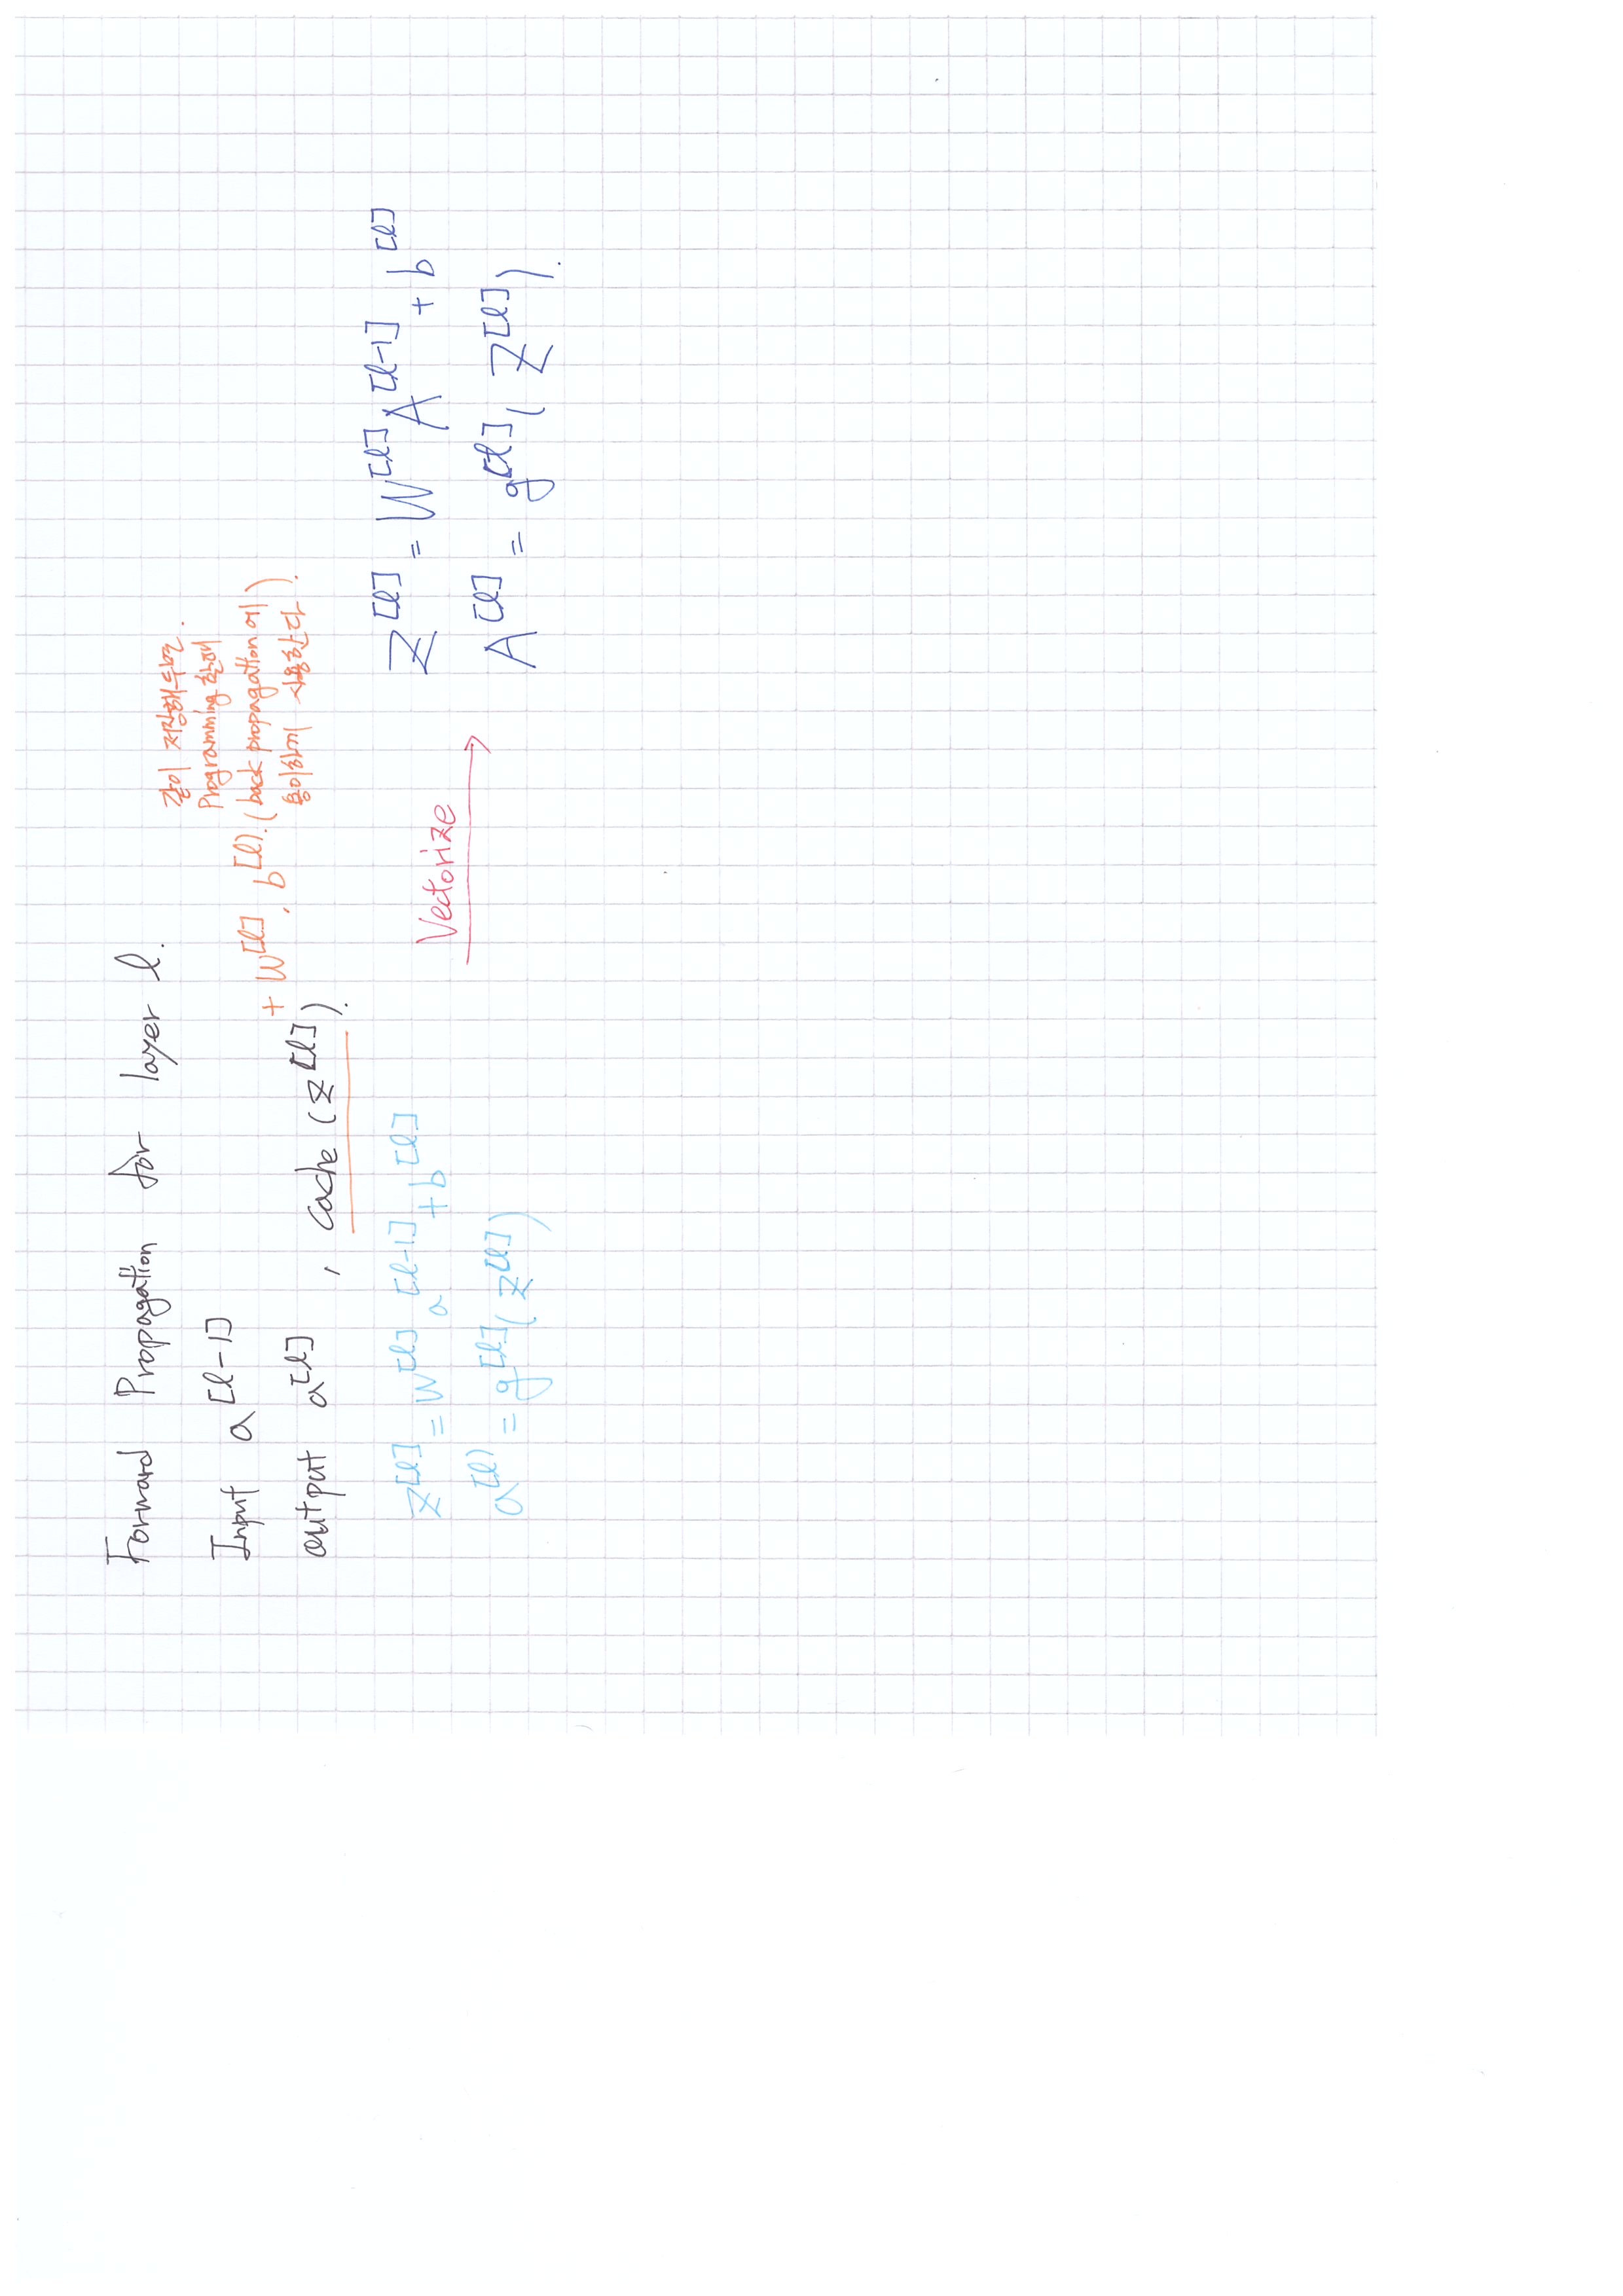 Forward Propagation for layer l.
Input a^[l-1]
output a^[l] , cache (z^[l]).
+ W^[l], b^[l].
같이 저장해두면.
Programming 할때
(back propagation에
용이하게 사용한다).
z^[l] = W^[l] a^[l-1] + b^[l]
a^[l] = g^[l](z^[l])
Vectorize
Z^[l] = W^[l] A^[l-1] + b^[l]
A^[l] = g^[l](Z^[l]).